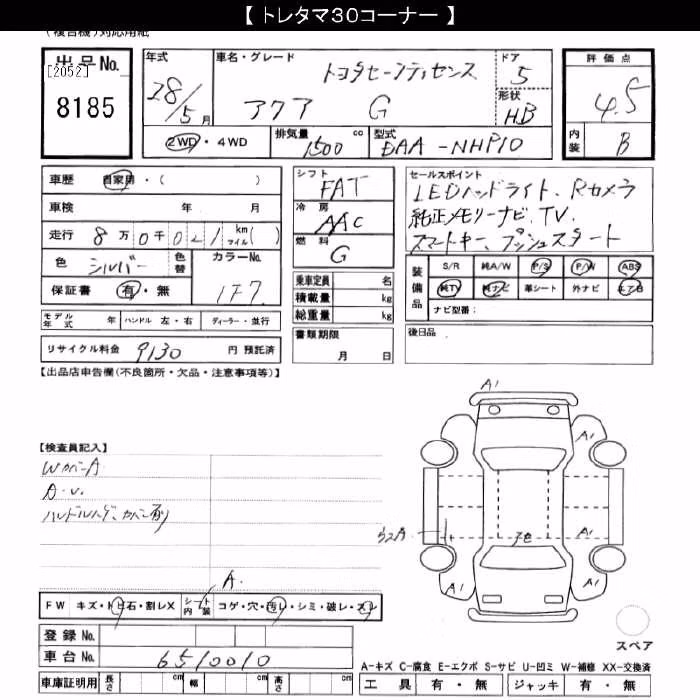 【 トレタマ30コーナー 】
(複合機)対応用紙
出品No. [2052] 8185
年式 28/5月
車名・グレード トヨタセーフティセンス アクア G
ドア 5
形状 HB
評価点 4.5
内装 B
2WD・4WD
排気量 1500 cc
型式 DAA-NHP10
車歴 自家用・( )
車検 年 月
走行 8万0千021 km マイル( )
色 シルバー 色替 カラーNo. 1F7
保証書 有・無
シフト FAT
冷房 AAC
燃料 G
乗車定員 名
積載量 kg
総重量 kg
書類期限 月 日
セールスポイント
LEDヘッドライト、Rカメラ
純正メモリーナビ、TV、
スマートキー、プッシュスタート
装備品 S/R 純A/W P/S P/W ABS
純TV 純ナビ 革シート 外ナビ エアB
ナビ型番:
後日品
モデル年式 年 ハンドル 左・右 ディーラー・並行
リサイクル料金 9130 円 預託済
【出品店申告欄(不良箇所・欠品・注意事項等)】
【検査員記入】
WカバーA
A.U.
ハンドルハゲ、カバー有り
A.
FW キズ・トビ石・割レX シート内装 コゲ・穴・汚レ・シミ・破レ・スレ
登録No.
車台No. 6510010
車庫証明用 長さ cm 幅 cm 高さ cm
A1
A1
A1
A1
A1
スペア
A-キズ C-腐食 E-エクボ S-サビ U-凹ミ W-補修 XX-交換済
工具 有・無 ジャッキ 有・無